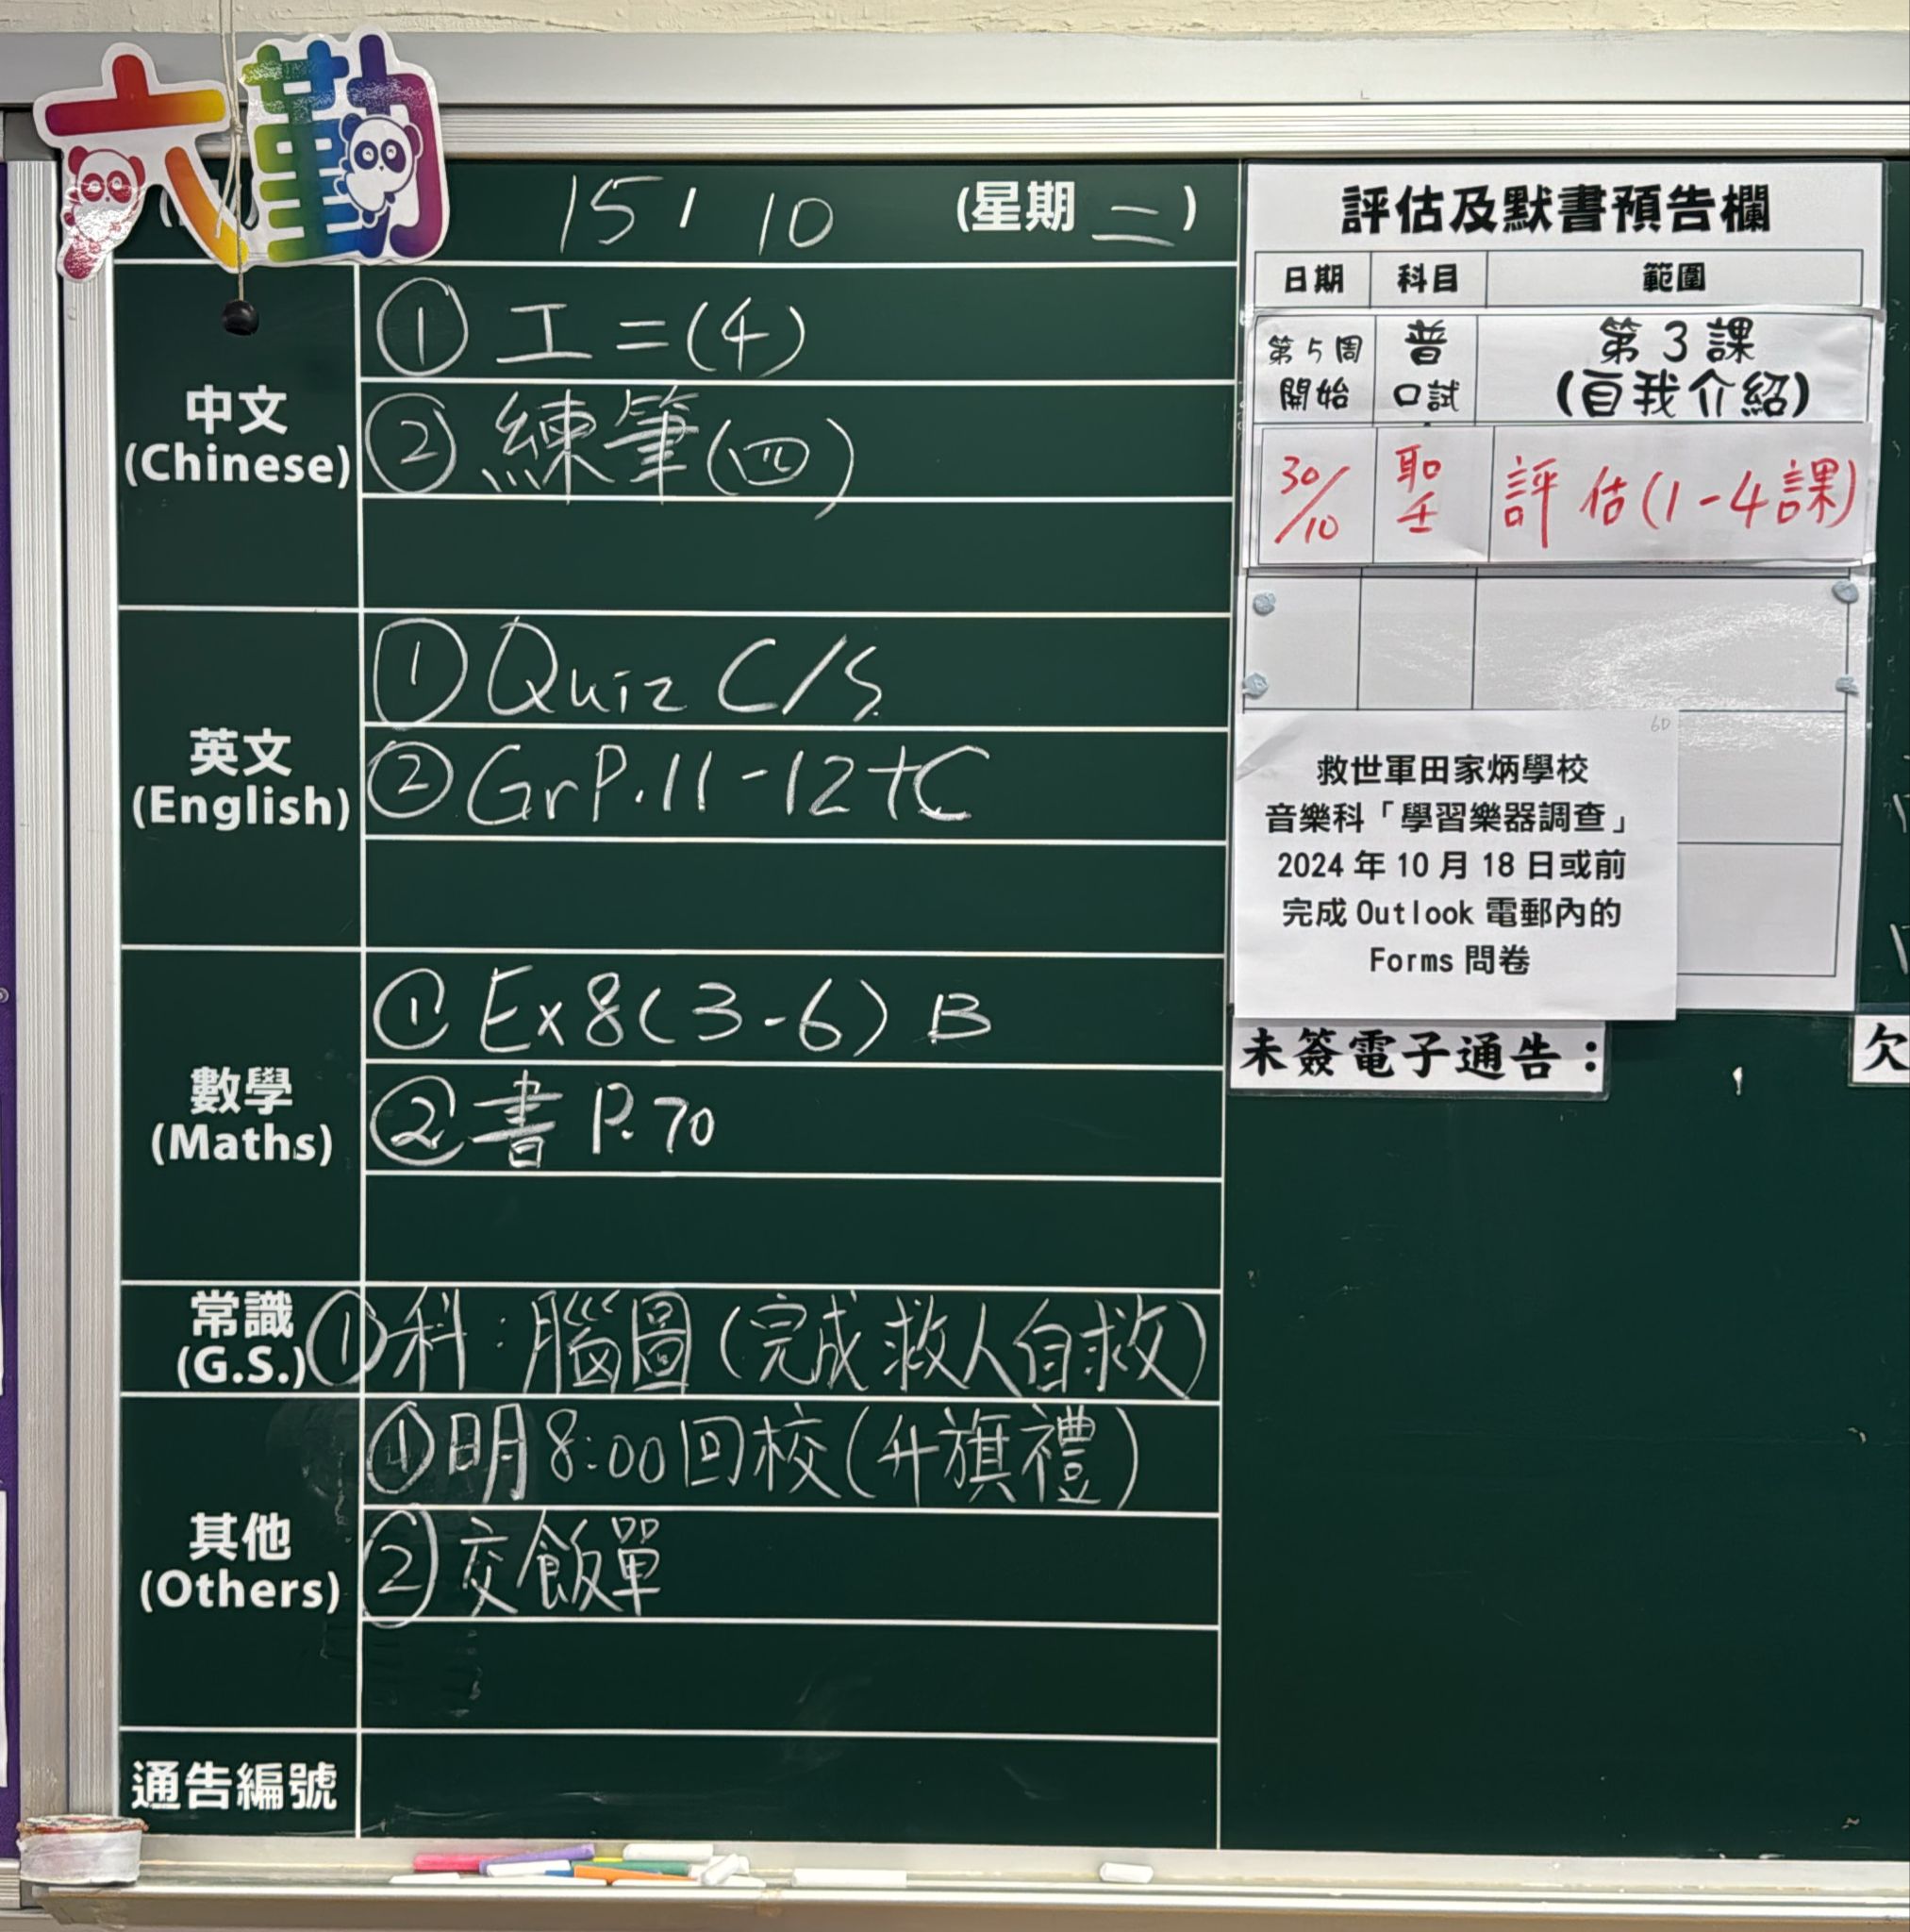 六勤
15 / 10 (星期二)
中文
(Chinese)
① 工二(4)
② 練筆(四)
英文
(English)
① Quiz C/S
② Gr P.11-12+C
數學
(Maths)
① Ex 8(3-6) B
② 書 P.70
常識
(G.S.)
① 科：腦圖(完成救人自救)
其他
(Others)
① 明 8:00 回校(升旗禮)
② 交飯單
通告編號
評估及默書預告欄
日期 科目 範圍
第5周開始 普口試 第3課(自我介紹)
30/10 聖 評估(1-4課)
6D
救世軍田家炳學校
音樂科「學習樂器調查」
2024 年 10 月 18 日或前
完成 Outlook 電郵內的
Forms 問卷
未簽電子通告：
欠